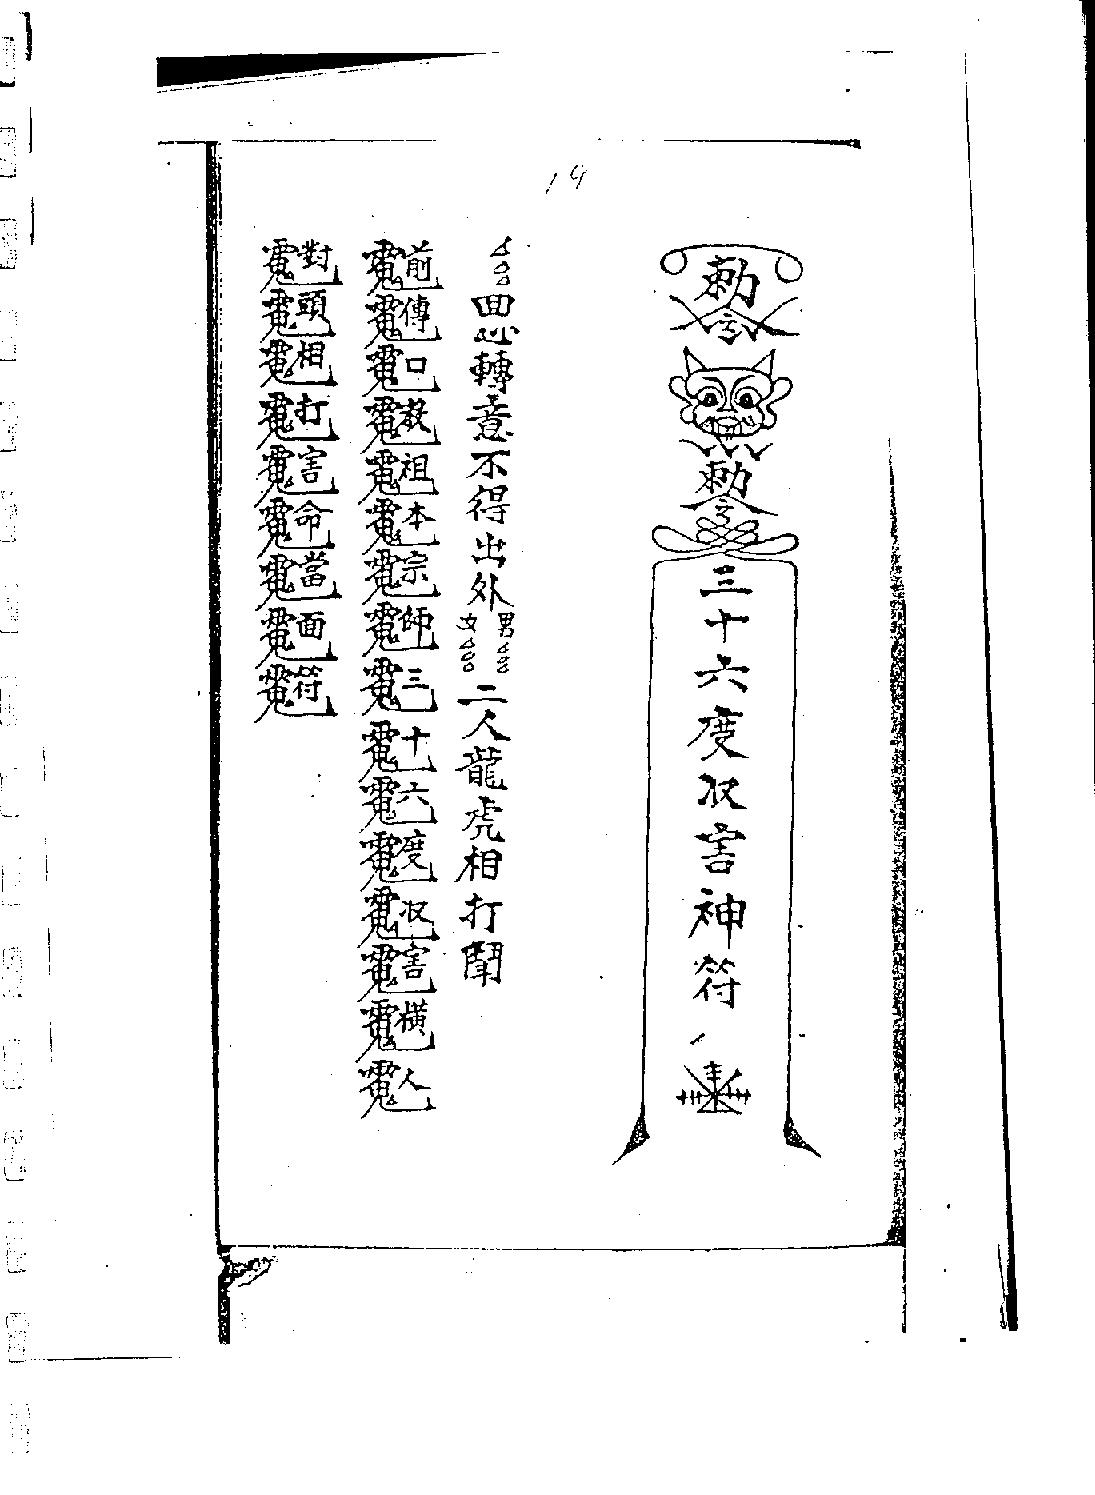 19
勅令
勅令
三十六度収害神符
回心轉意不得出外男女二人龍虎相打鬧
前傳口教祖本宗師三十六度収害橫人
對頭相打害命當面符